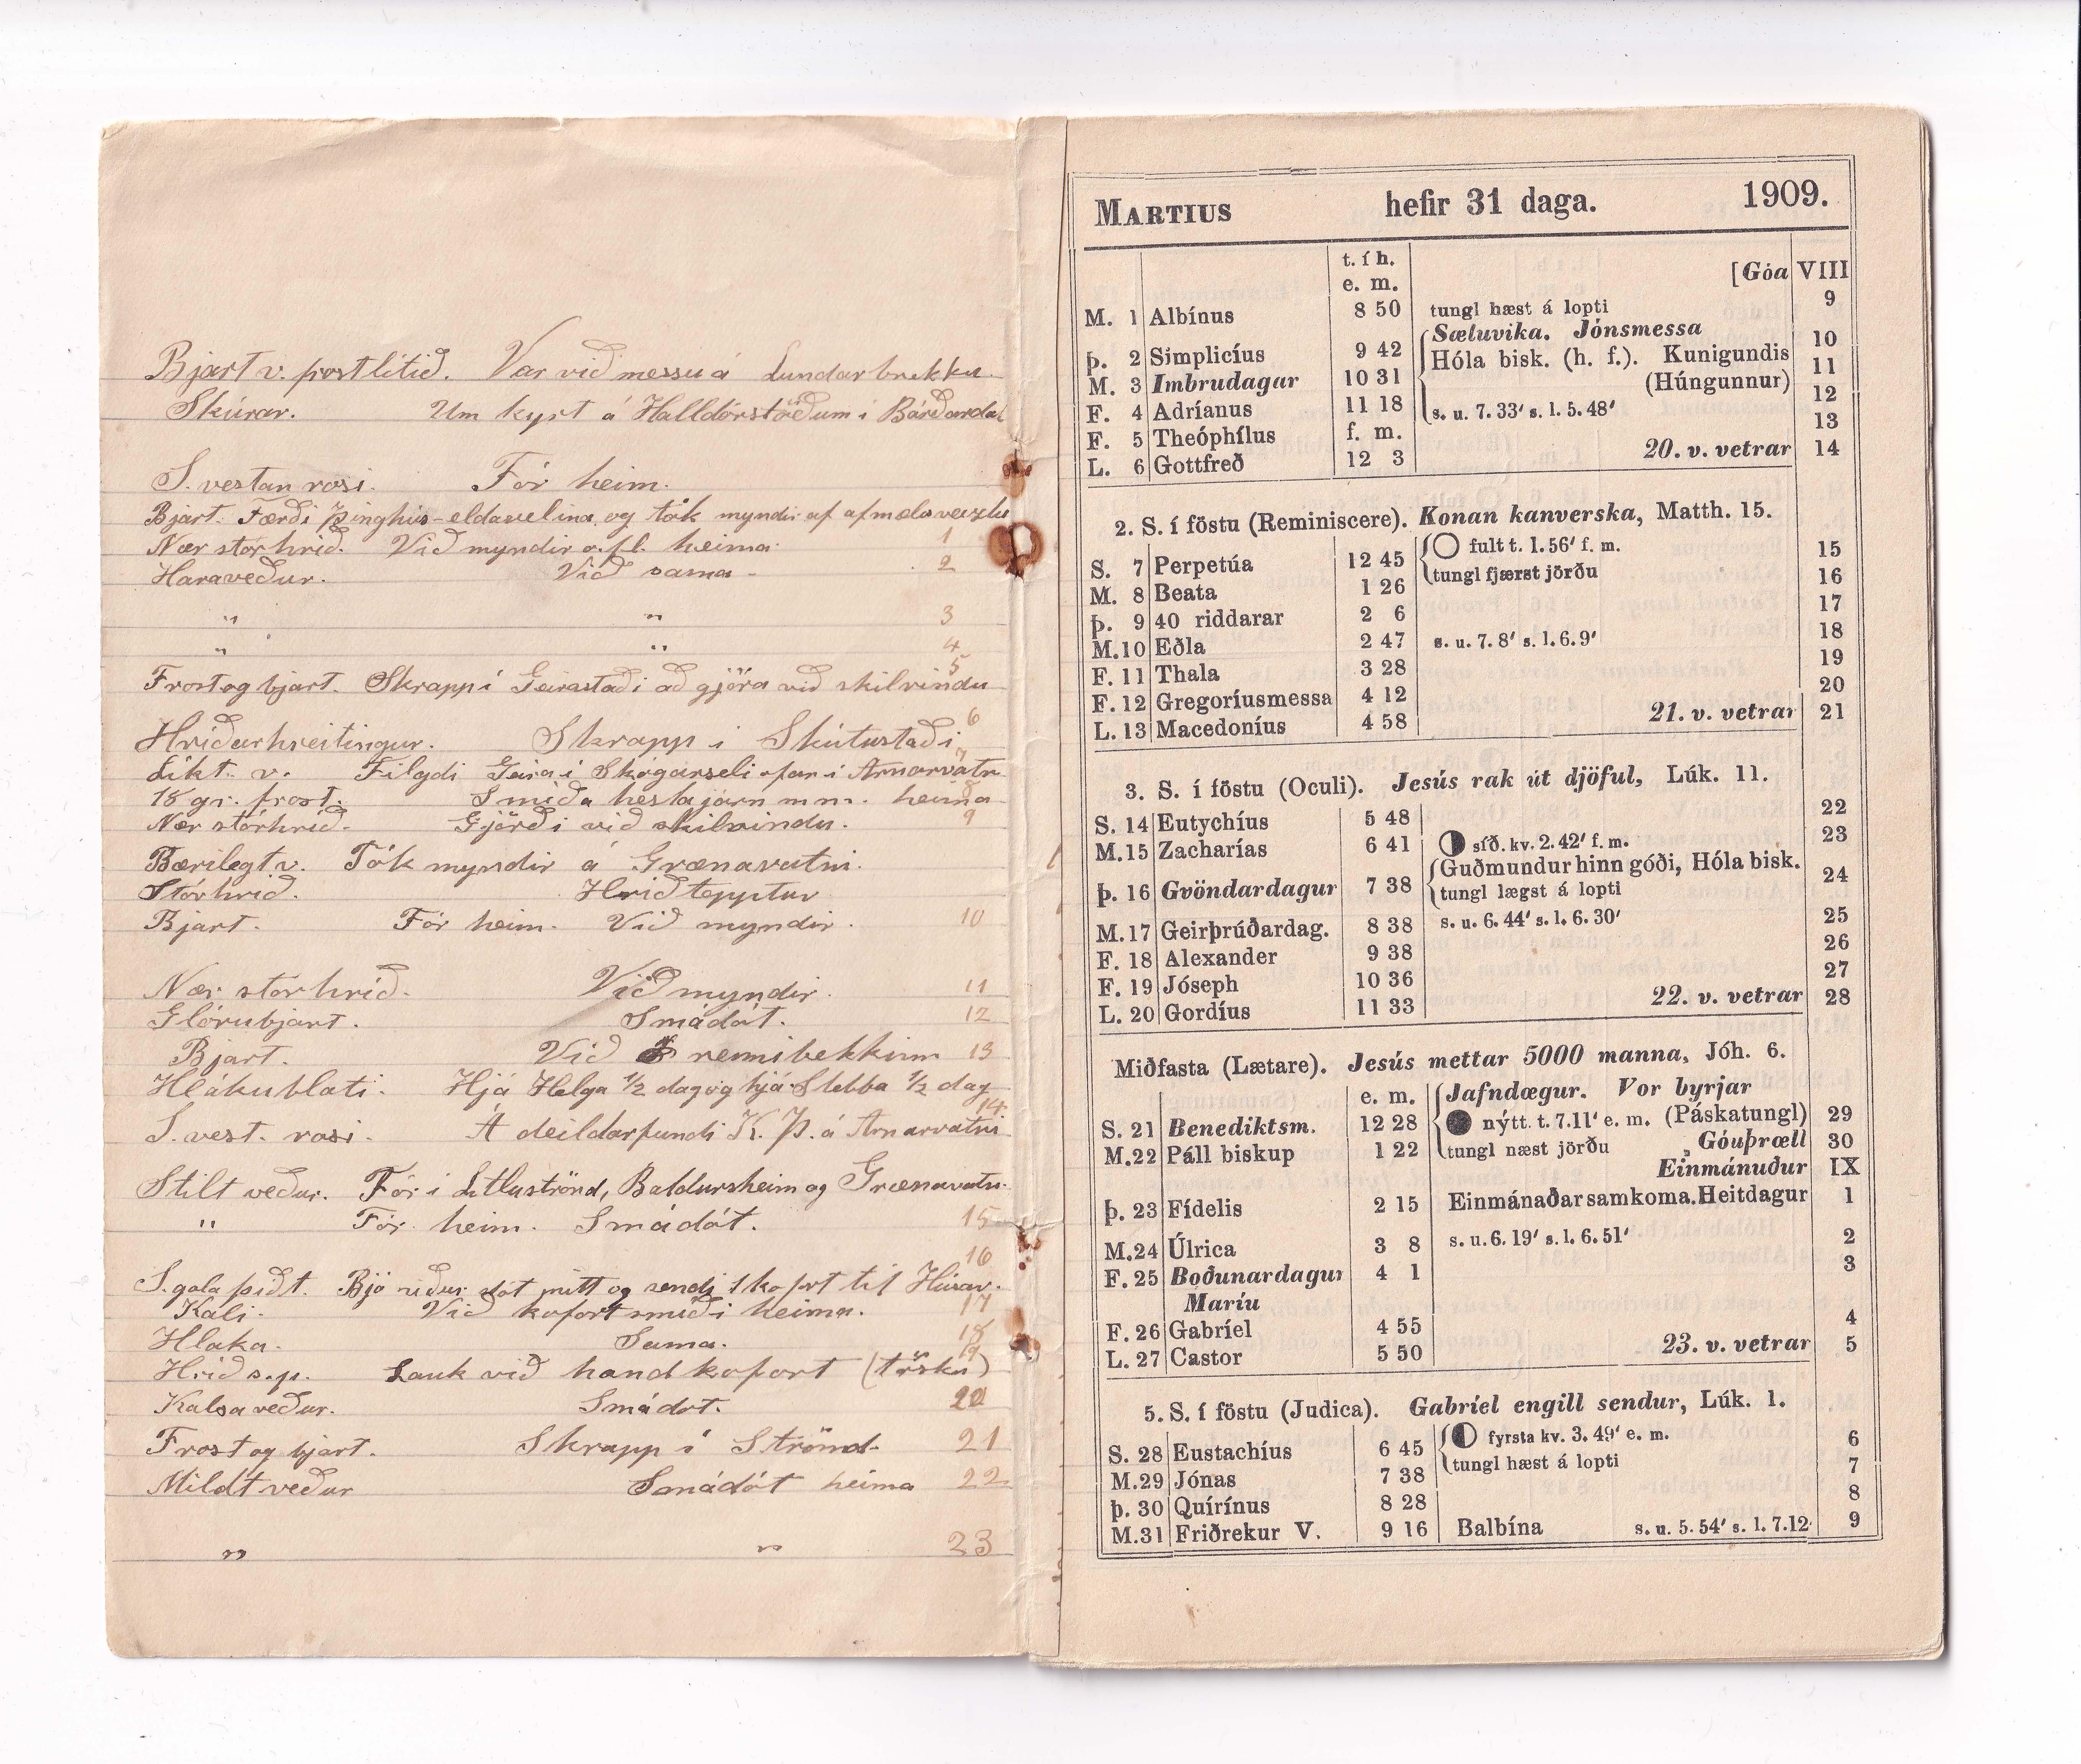 Bjart v. frostlítið. Var við messu á Lundarbrekku.
Skúrar. Um kyrt á Halldórstöðum í Bárðardal
S. vestan rosi. Fór heim.
Bjart. Færði þinghús-eldavelina, og tók myndir af afmælaveizlu
Nær stórhríð. Við myndir o.fl. heima. 1
Haraveður. Við sama 2
" " 3
" " 4
5
Frost og bjart. Skrapp í Geirastaði að gjöra við skilvindu
6
Hríðarhreitingur. Skrapp í Skútustaði
7
Líkt v. Filgdi Geira í Skógarseli ofan í Arnarvatn
8
18 gr. frost. Smíða hestajárn m m. heima
Nær stórhríð. Gjörði við skilvindu. 9
Bærilegt v. Tók myndir á Grænavatni.
Stórhríð. Hríðtepptur
Bjart. Fór heim. Við myndir. 10
Nær stórhríð. Við myndir. 11
Glórubjart. Smádót. 12
Bjart. Við rennibekkinn 13
Hlákublati. Hjá Helga 1/2 dag og hjá Stebba 1/2 dag
14.
S. vest. rosi. Á deildarfundi K. Þ. á Arnarvatni
Stilt veður. Fór í Litluströnd, Baldursheim og Grænavatn.
" Fór heim. Smádót. 15
16
S. gola þiðt. Bjó niður dót mitt og sendi 1 kofort til Húsav.
Kali. Við kofortsmíði heima. 17
Hlaka. Sama. 18
19
Hríð s.p. Lauk við handkofort (tösku)
Kalsaveður. Smádót. 20
Frost og bjart. Skrapp í Strönd. 21
Mildt veður Smádót heima 22
" " 23
MARTIUS hefir 31 daga. 1909.
t. í h.
e. m. [Góa VIII
M. 1 Albínus 8 50 tungl hæst á lopti 9
Sæluvika. Jónsmessa
þ. 2 Simplicíus 9 42 Hóla bisk. (h. f.). Kunigundis 10
M. 3 Imbrudagar 10 31 (Húngunnur) 11
F. 4 Adríanus 11 18 s. u. 7. 33' s. l. 5. 48' 12
F. 5 Theóphílus f. m. 13
L. 6 Gottfreð 12 3 20. v. vetrar 14
2. S. í föstu (Reminiscere). Konan kanverska, Matth. 15.
S. 7 Perpetúa 12 45 fult t. 1. 56' f. m. 15
M. 8 Beata 1 26 tungl fjærst jörðu 16
þ. 9 40 riddarar 2 6 17
M. 10 Eðla 2 47 s. u. 7. 8' s. l. 6. 9' 18
F. 11 Thala 3 28 19
F. 12 Gregoríusmessa 4 12 20
L. 13 Macedoníus 4 58 21. v. vetrar 21
3. S. í föstu (Oculi). Jesús rak út djöful, Lúk. 11.
S. 14 Eutychíus 5 48 22
M. 15 Zacharías 6 41 síð. kv. 2. 42' f. m. 23
Guðmundur hinn góði, Hóla bisk.
þ. 16 Gvöndardagur 7 38 tungl lægst á lopti 24
M. 17 Geirþrúðardag. 8 38 s. u. 6. 44' s. l. 6. 30' 25
F. 18 Alexander 9 38 26
F. 19 Jóseph 10 36 27
L. 20 Gordíus 11 33 22. v. vetrar 28
Miðfasta (Lætare). Jesús mettar 5000 manna, Jóh. 6.
e. m. Jafndægur. Vor byrjar
S. 21 Benediktsm. 12 28 nýtt t. 7. 11' e. m. (Páskatungl) 29
M. 22 Páll biskup 1 22 tungl næst jörðu Góuþræll 30
Einmánuður IX
þ. 23 Fídelis 2 15 Einmánaðarsamkoma. Heitdagur 1
M. 24 Úlrica 3 8 s. u. 6. 19' s. l. 6. 51' 2
F. 25 Boðunardagur 4 1 3
Maríu
F. 26 Gabríel 4 55 4
L. 27 Castor 5 50 23. v. vetrar 5
5. S. í föstu (Judica). Gabríel engill sendur, Lúk. 1.
S. 28 Eustachíus 6 45 fyrsta kv. 3. 49' e. m. 6
M. 29 Jónas 7 38 tungl hæst á lopti 7
þ. 30 Quírínus 8 28 8
M. 31 Friðrekur V. 9 16 Balbína s. u. 5. 54' s. l. 7. 12' 9